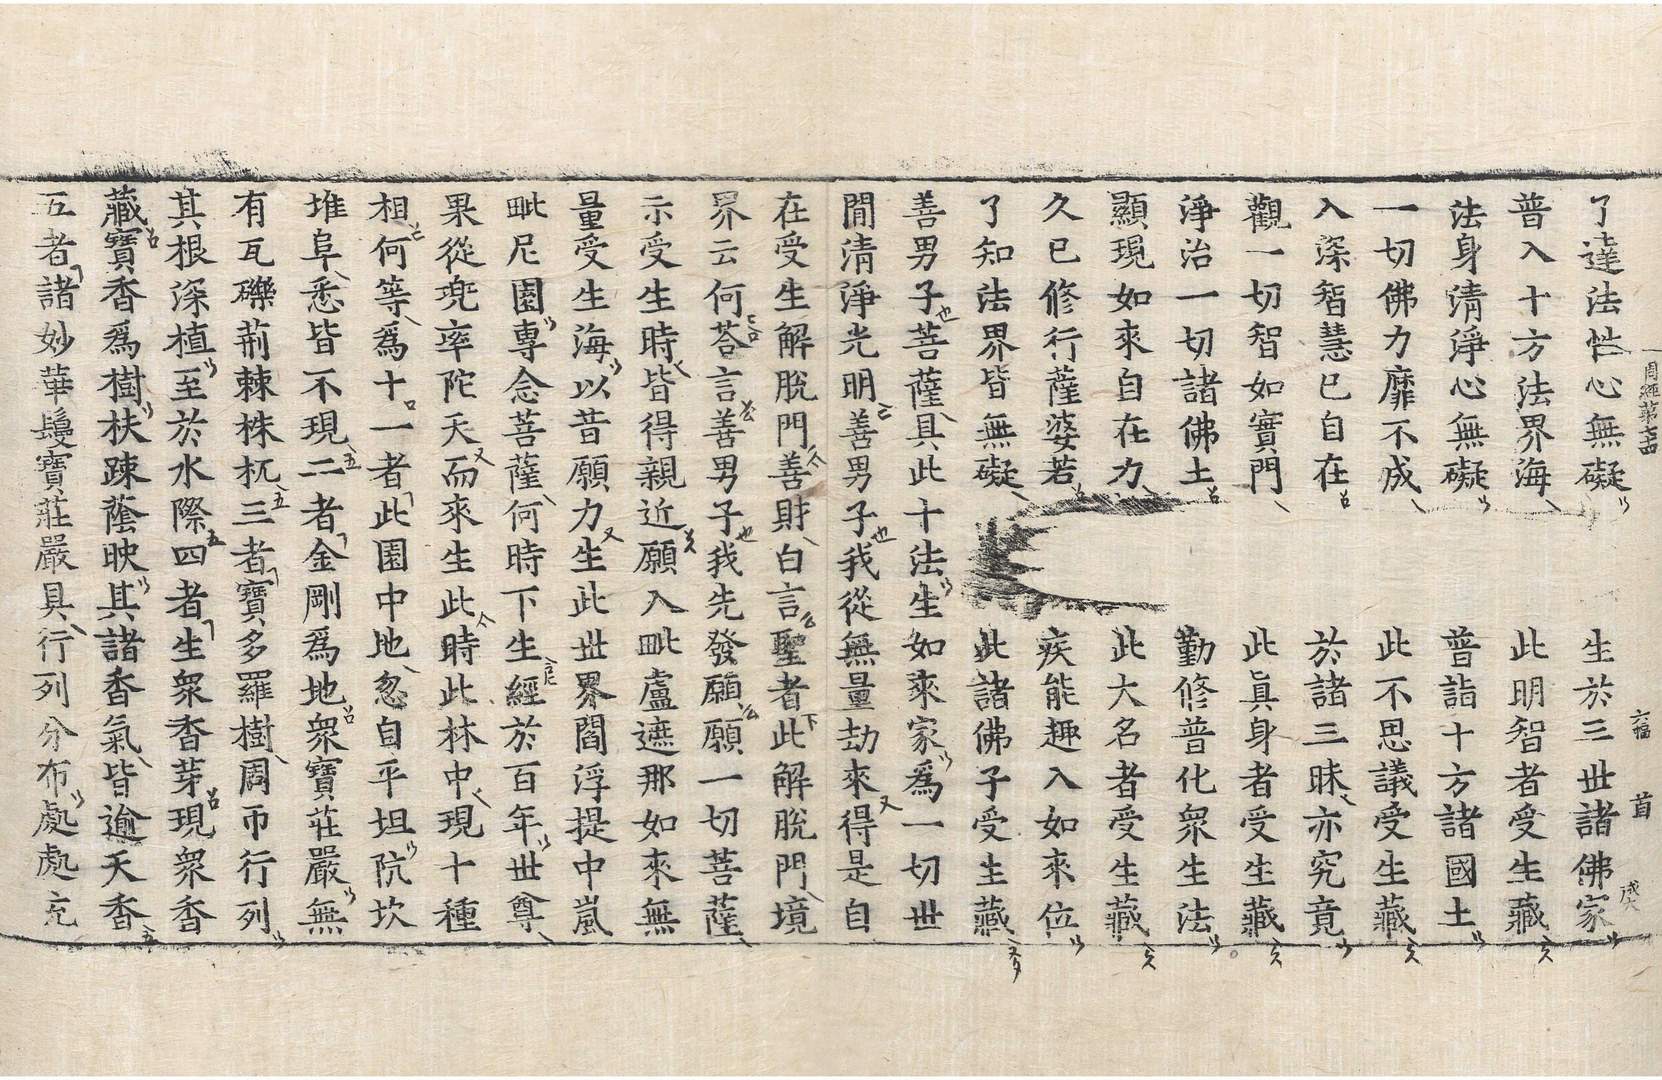 周經第七十四 六幅 首 成癸
了達法性心無礙 生於三世諸佛家
普入十方法界海 此明智者受生藏
法身清淨心無礙 普詣十方諸國土
一切佛力靡不成 此不思議受生藏
入深智慧已自在 於諸三昧亦究竟
觀一切智如實門 此眞身者受生藏
淨治一切諸佛土 勤修普化衆生法
顯現如來自在力 此大名者受生藏
久已修行薩婆若 疾能趣入如來位
了知法界皆無礙 此諸佛子受生藏
善男子菩薩具此十法生如來家爲一切世
閒清淨光明善男子我從無量劫來得是自
在受生解脫門善財白言聖者此解脫門境
界云何荅言善男子我先發願願一切菩薩
示受生時皆得親近願入毗盧遮那如來無
量受生海以昔願力生此世界閻浮提中嵐
毗尼園專念菩薩何時下生經於百年世尊
果從兜率陀天而來生此時此林中現十種
相何等爲十一者此園中地忽自平坦阬坎
堆阜悉皆不現二者金剛爲地衆寶莊嚴無
有瓦礫荊棘株杌三者寶多羅樹周帀行列
其根深植至於水際四者生衆香芽現衆香
藏寶香爲樹扶疎蔭映其諸香氣皆逾天香
五者諸妙華鬘寶莊嚴具行列分布處處充